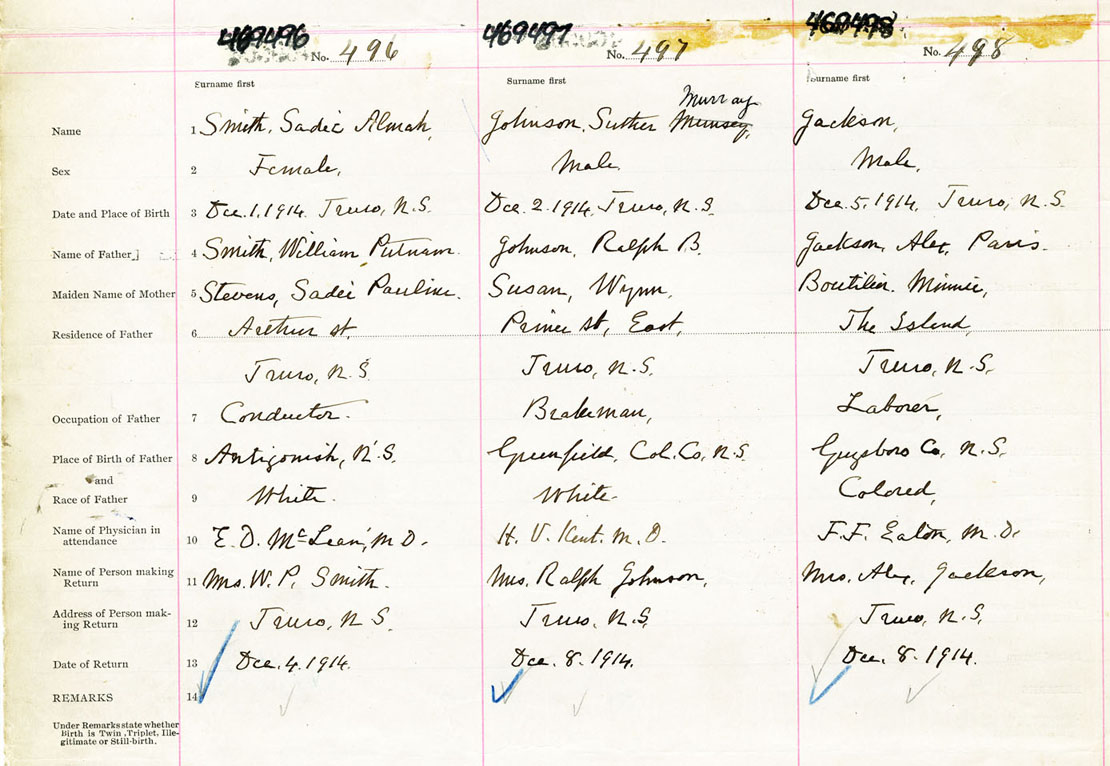 469496 469497 469498
No. 496 No. 497 No. 498
Surname first Surname first Surname first
Murray
Name 1 Smith, Sadie Almah, Johnson, Suther Munsey, Jackson,
Sex 2 Female, Male Male,
Date and Place of Birth 3 Dec. 1, 1914. Truro, N.S. Dec. 2. 1914, Truro, N.S. Dec. 5, 1914, Truro, N.S.
Name of Father 4 Smith, William Putnam. Johnson, Ralph B. Jackson, Alex, Paris.
Maiden Name of Mother 5 Stevens, Sadie Pauline. Susan, Wynn, Boutilier. Minnie,
Residence of Father 6 Arthur st, Prince st, East, The Island,
Truro, N.S. Truro, N.S. Truro, N.S.
Occupation of Father 7 Conductor. Brakeman, Laborer,
Place of Birth of Father 8 Antigonish, N.S. Greenfield, Col. Co, N.S. Guysboro Co, N.S.
and
Race of Father 9 White. White. Colored,
Name of Physician in
attendance 10 E. D. McLean, M.D. H. V. Kent. M.D. F.F. Eaton, M.D.
Name of Person making
Return 11 Mrs. W. P. Smith. Mrs. Ralph Johnson, Mrs. Alex, Jackson,
Address of Person mak-
ing Return 12 Truro, N.S. Truro, N.S. Truro, N.S.
Date of Return 13 Dec. 4. 1914. Dec. 8. 1914. Dec. 8. 1914.
REMARKS 14
Under Remarks state whether
Birth is Twin, Triplet, Ille-
gitimate or Still-birth.